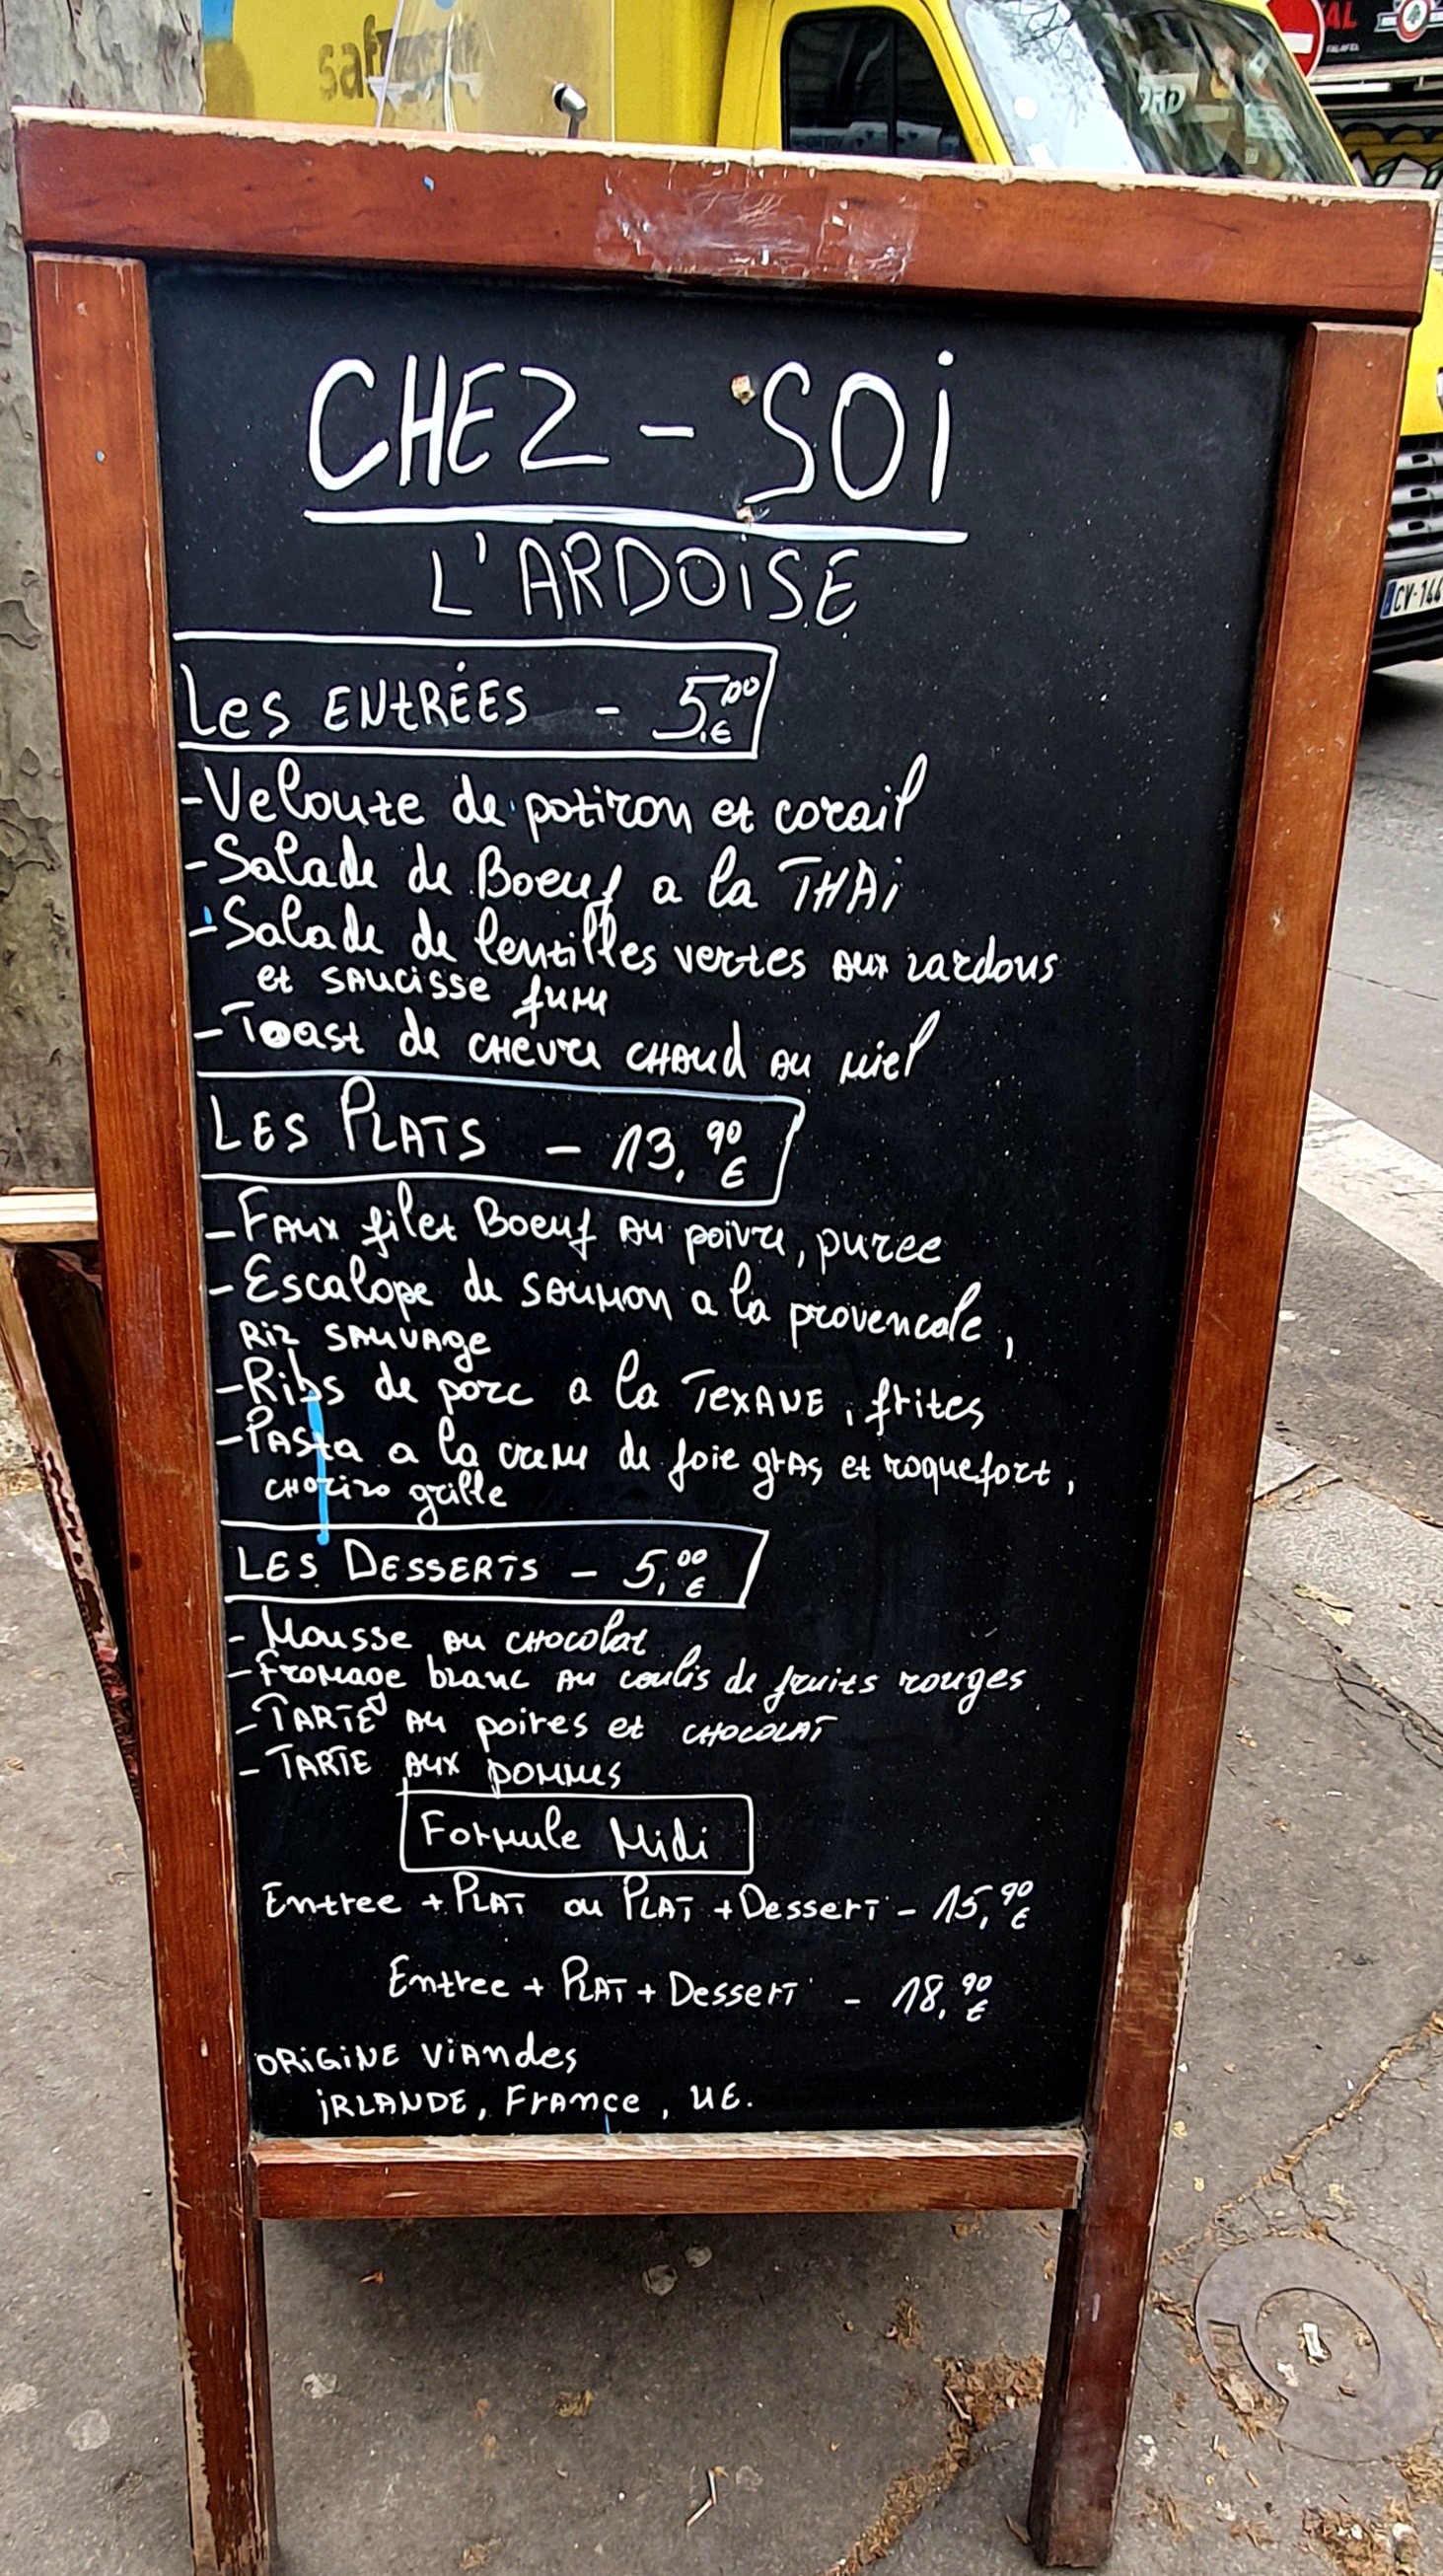 CHEZ - SOi
L'ARDOiSE
Les ENtRÉES - 5,00 €
- Veloute de potiron et corail
- Salade de Boeuf a la THAi
- Salade de lentilles vertes AUX lardons
et SAUCISSE fume
- Toast de CHEVRE CHAUD AU MieL
LES PLATS - 13,90 €
- FAUX filet Boeuf AU poivre, puree
- Escalope de SAUMON a la provencale,
Riz SAUVAge
- Ribs de porc a la TexANE, frites
- PASta a la creme de foie grAs et roquefort,
CHOrizo grille
LES DESSERTS - 5,00 €
- Mousse AU CHOCOlat
- fromage blanc AU coulis de fruits rouges
- TARTE AU poires et CHOCOLAT
- TARTE AUX pommes
Formule Midi
Entree + PLAT ou PLAT + Dessert - 15,90 €
Entree + PLAT + Dessert - 18,90 €
ORiGiNE ViAndes
iRLANDE, FrAnce, UE.
CV-144